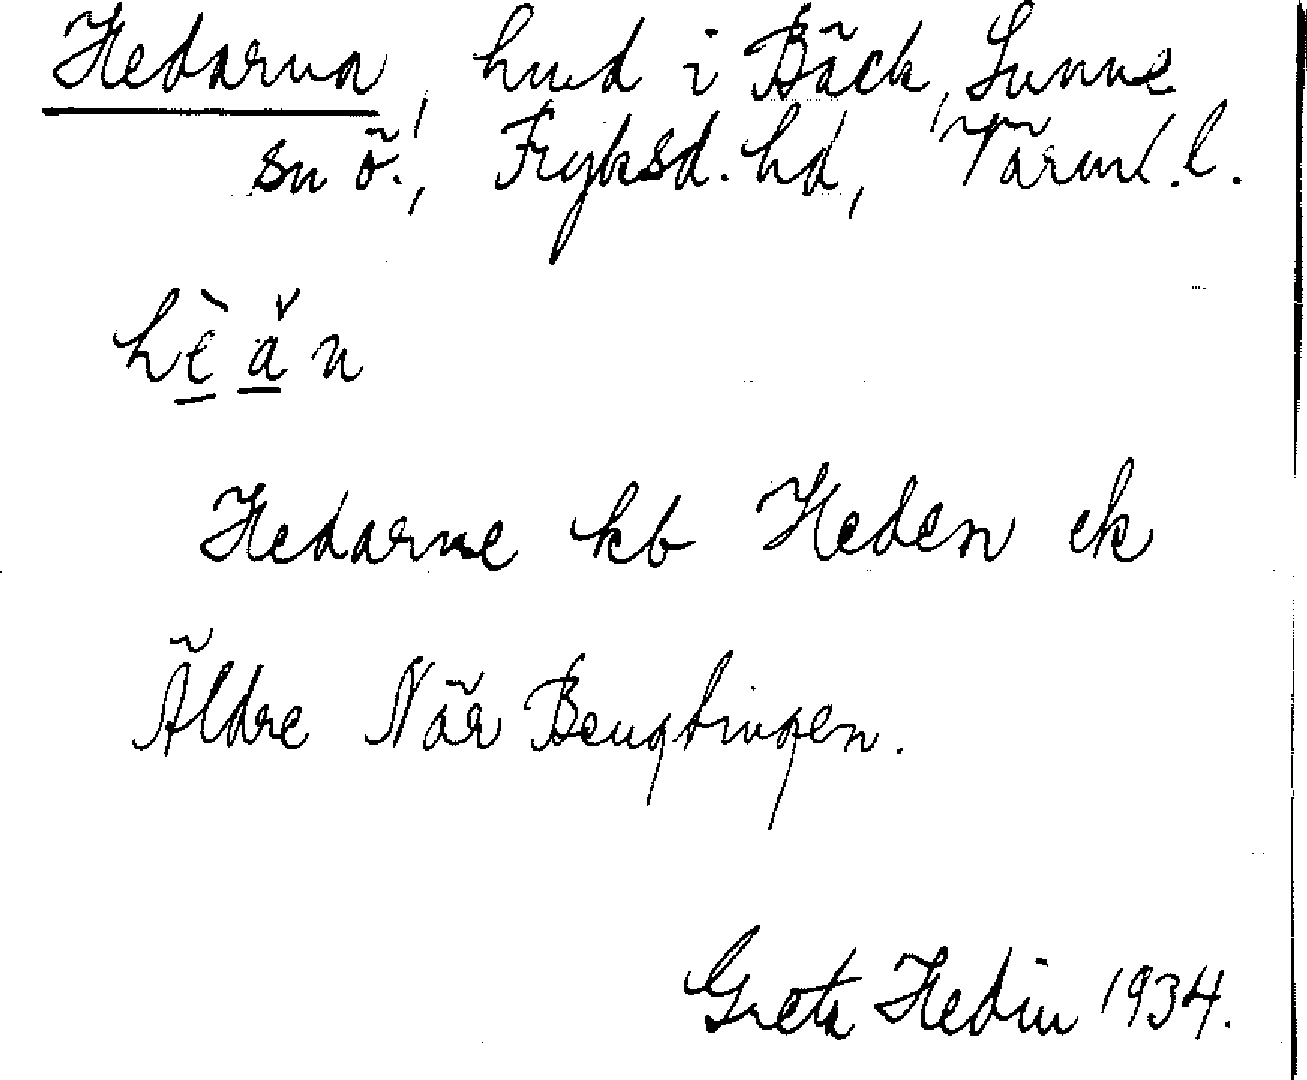 Hedarna, hmd i Bäck, Sunne
sn ö., Fryksd. hd, Värml. l.
hè ǎ n
Hedarne kb Heden ek
Äldre När Bengtingen.
Greta Hedin 1934.